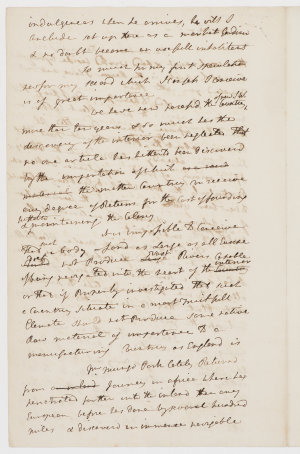 indulgences when he arrives, he will I
conclude set up here as a market Gardiner
& no doubt become an usefull inhabitant
to my first speculation
record which I hope I
is of great importance
We have now possesd the Country
more than ten years & so much has the
discovery of the interior been neglected that
no one article has hitherto been discoverd
by the importation of which
the mother Countrey can receive
any degree of Returns for the Cost of founding
& maintaining the Colony
It is impossible to Conceive
that such a body of Land as Large as all Europe
does not Produce Rivers Capable
of being navigated into the heart of the interior
or that if Properly investigated that such
a Country Situate in a most fruitfull
Climate should not Produce some native
Raw material of importance to a
manufacturing Country as England is
Mr Mungo Park lately Returnd
from Journey in africa where he has
penetrated further into the inland than any
European before has done by several hundred
miles & discoverd an immense navigable